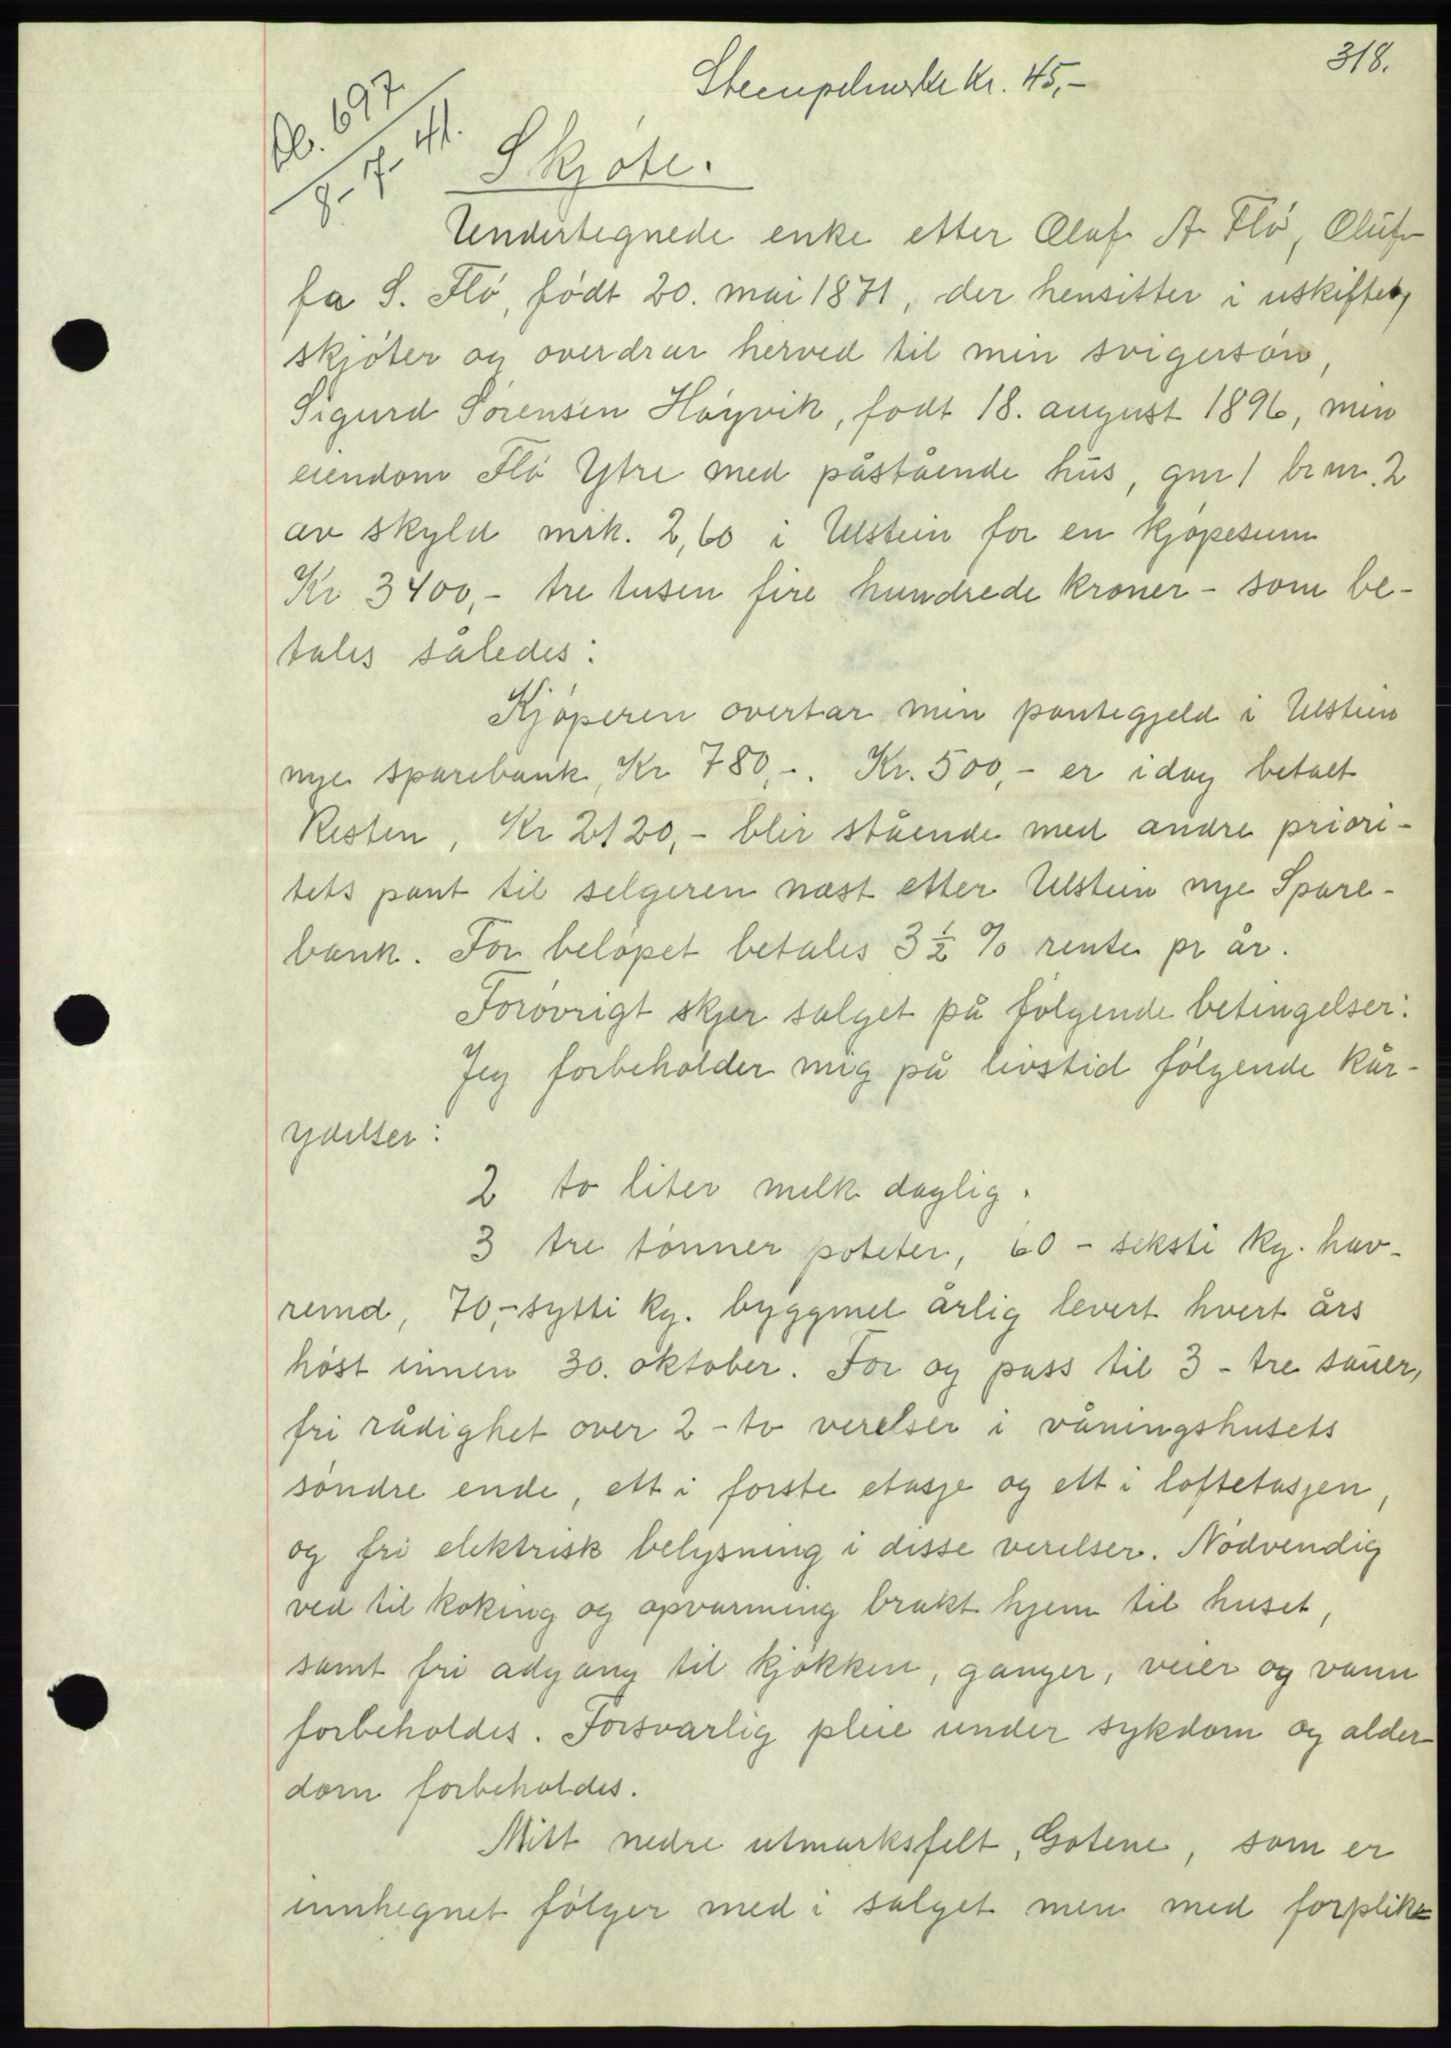 318.
Stempelmerke Kr. 45,-
Db. 697
8-7-41.
Skjøte.
Undertegnede enke etter Olaf A. Flø, Oluf-
fa S. Flø, født 20. mai 1871, der hensitter i uskiftet,
skjøter og overdrar herved til min svigersøn,
Sigurd Sørensen Høyvik, født 18. august 1896, min
eiendom Flø Ytre med påstående hus, gnr 1 br nr. 2
av skyld mrk. 2,60 i Ulstein for en kjøpesum
Kr 3400,- tre tusen fire hundrede kroner - som be-
tales således:
Kjøperen overtar min pantegjeld i Ulstein
nye sparebank, Kr 780,-. Kr. 500,- er idag betalt
Resten, Kr 2120,- blir stående med andre priori-
tets pant til selgeren næst etter Ulstein nye Spare-
bank. For beløpet betales 3 ½ % rente pr år.
Forøvrigt skjer salget på følgende betingelser:
Jeg forbeholder mig på livstid følgende kår-
ydelser:
2 to liter melk daglig.
3 tre tønner poteter, 60 - seksti kg. hav-
remel, 70,- sytti kg. byggmel årlig levert hvert års
høst innen 30. oktober. For og pass til 3 - tre sauer,
fri rådighet over 2 - to verelser i våningshusets
søndre ende, ett i første etasje og ett i loftetasjen,
og fri elektrisk belysning i disse verelser. Nødvendig
ved til koking og opvarming brakt hjem til huset,
samt fri adgang til kjøkken, ganger, veier og vann
forbeholdes. Forsvarlig pleie under sykdom og alder-
dom forbeholdes.
Mitt nedre utmarksfelt, Gotene, som er
innhegnet følger med i salget men med forplik=